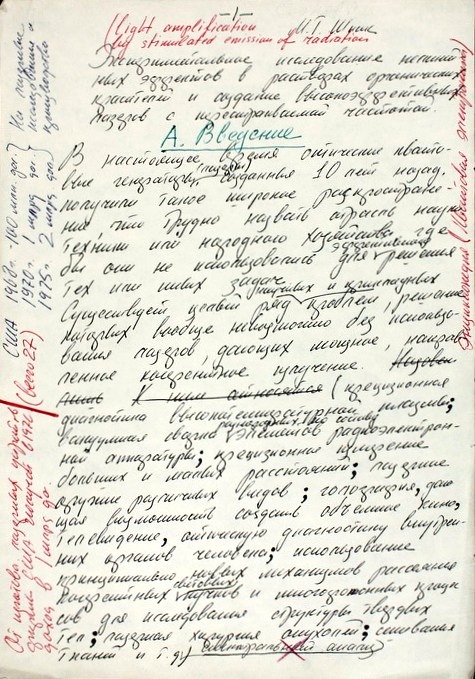 -1-
(light amplification
by stimulated emission of radiation
Экспериментальное исследование нелиней
ных эффектов в растворах органических
красителей и создание высокоэффективных
лазеров с перестраиваемой частотой.
А. Введение
В настоящее время оптические кванто-
вые генераторы (лазеры), созданные 10 лет назад,
получили такое широкое распростране-
ние, что трудно назвать отрасль науки
техники или народного хозяйства, где
бы они не использовались для эффективного решения
тех или иных задач научных и прикладных
Существует целый ряд проблем, решение
которых вообще немыслимо без использо-
вания лазеров, дающих мощное, направ
ленное когерентное излучение.
К ним относятся (прецизионная
диагностика высокотемпературной плазмы;
вакуумная сварка элементов радиоэлектрон-
ной аппаратуры; прецизионное измерение
больших и малых расстояний; лазерное
оружие различных видов; голография, даю
щая возможность создать объемное кино,
телевидение, оптическую диагностику внутрен-
них органов человека; использование
принципиально новых механизмов рассеяния
когерентных световых пучков и многофотонных процес
сов для исследования структуры твердых
тел; лазерная хирургия опухолей; сшивания
тканей и т.д.) спектральный анализ
США 1968г. - 100 млн. дол.
1970г. 1 млрд дол.
1975г. 2 млрд дол.
На лазерные
исследования и
производство
(всего 27)